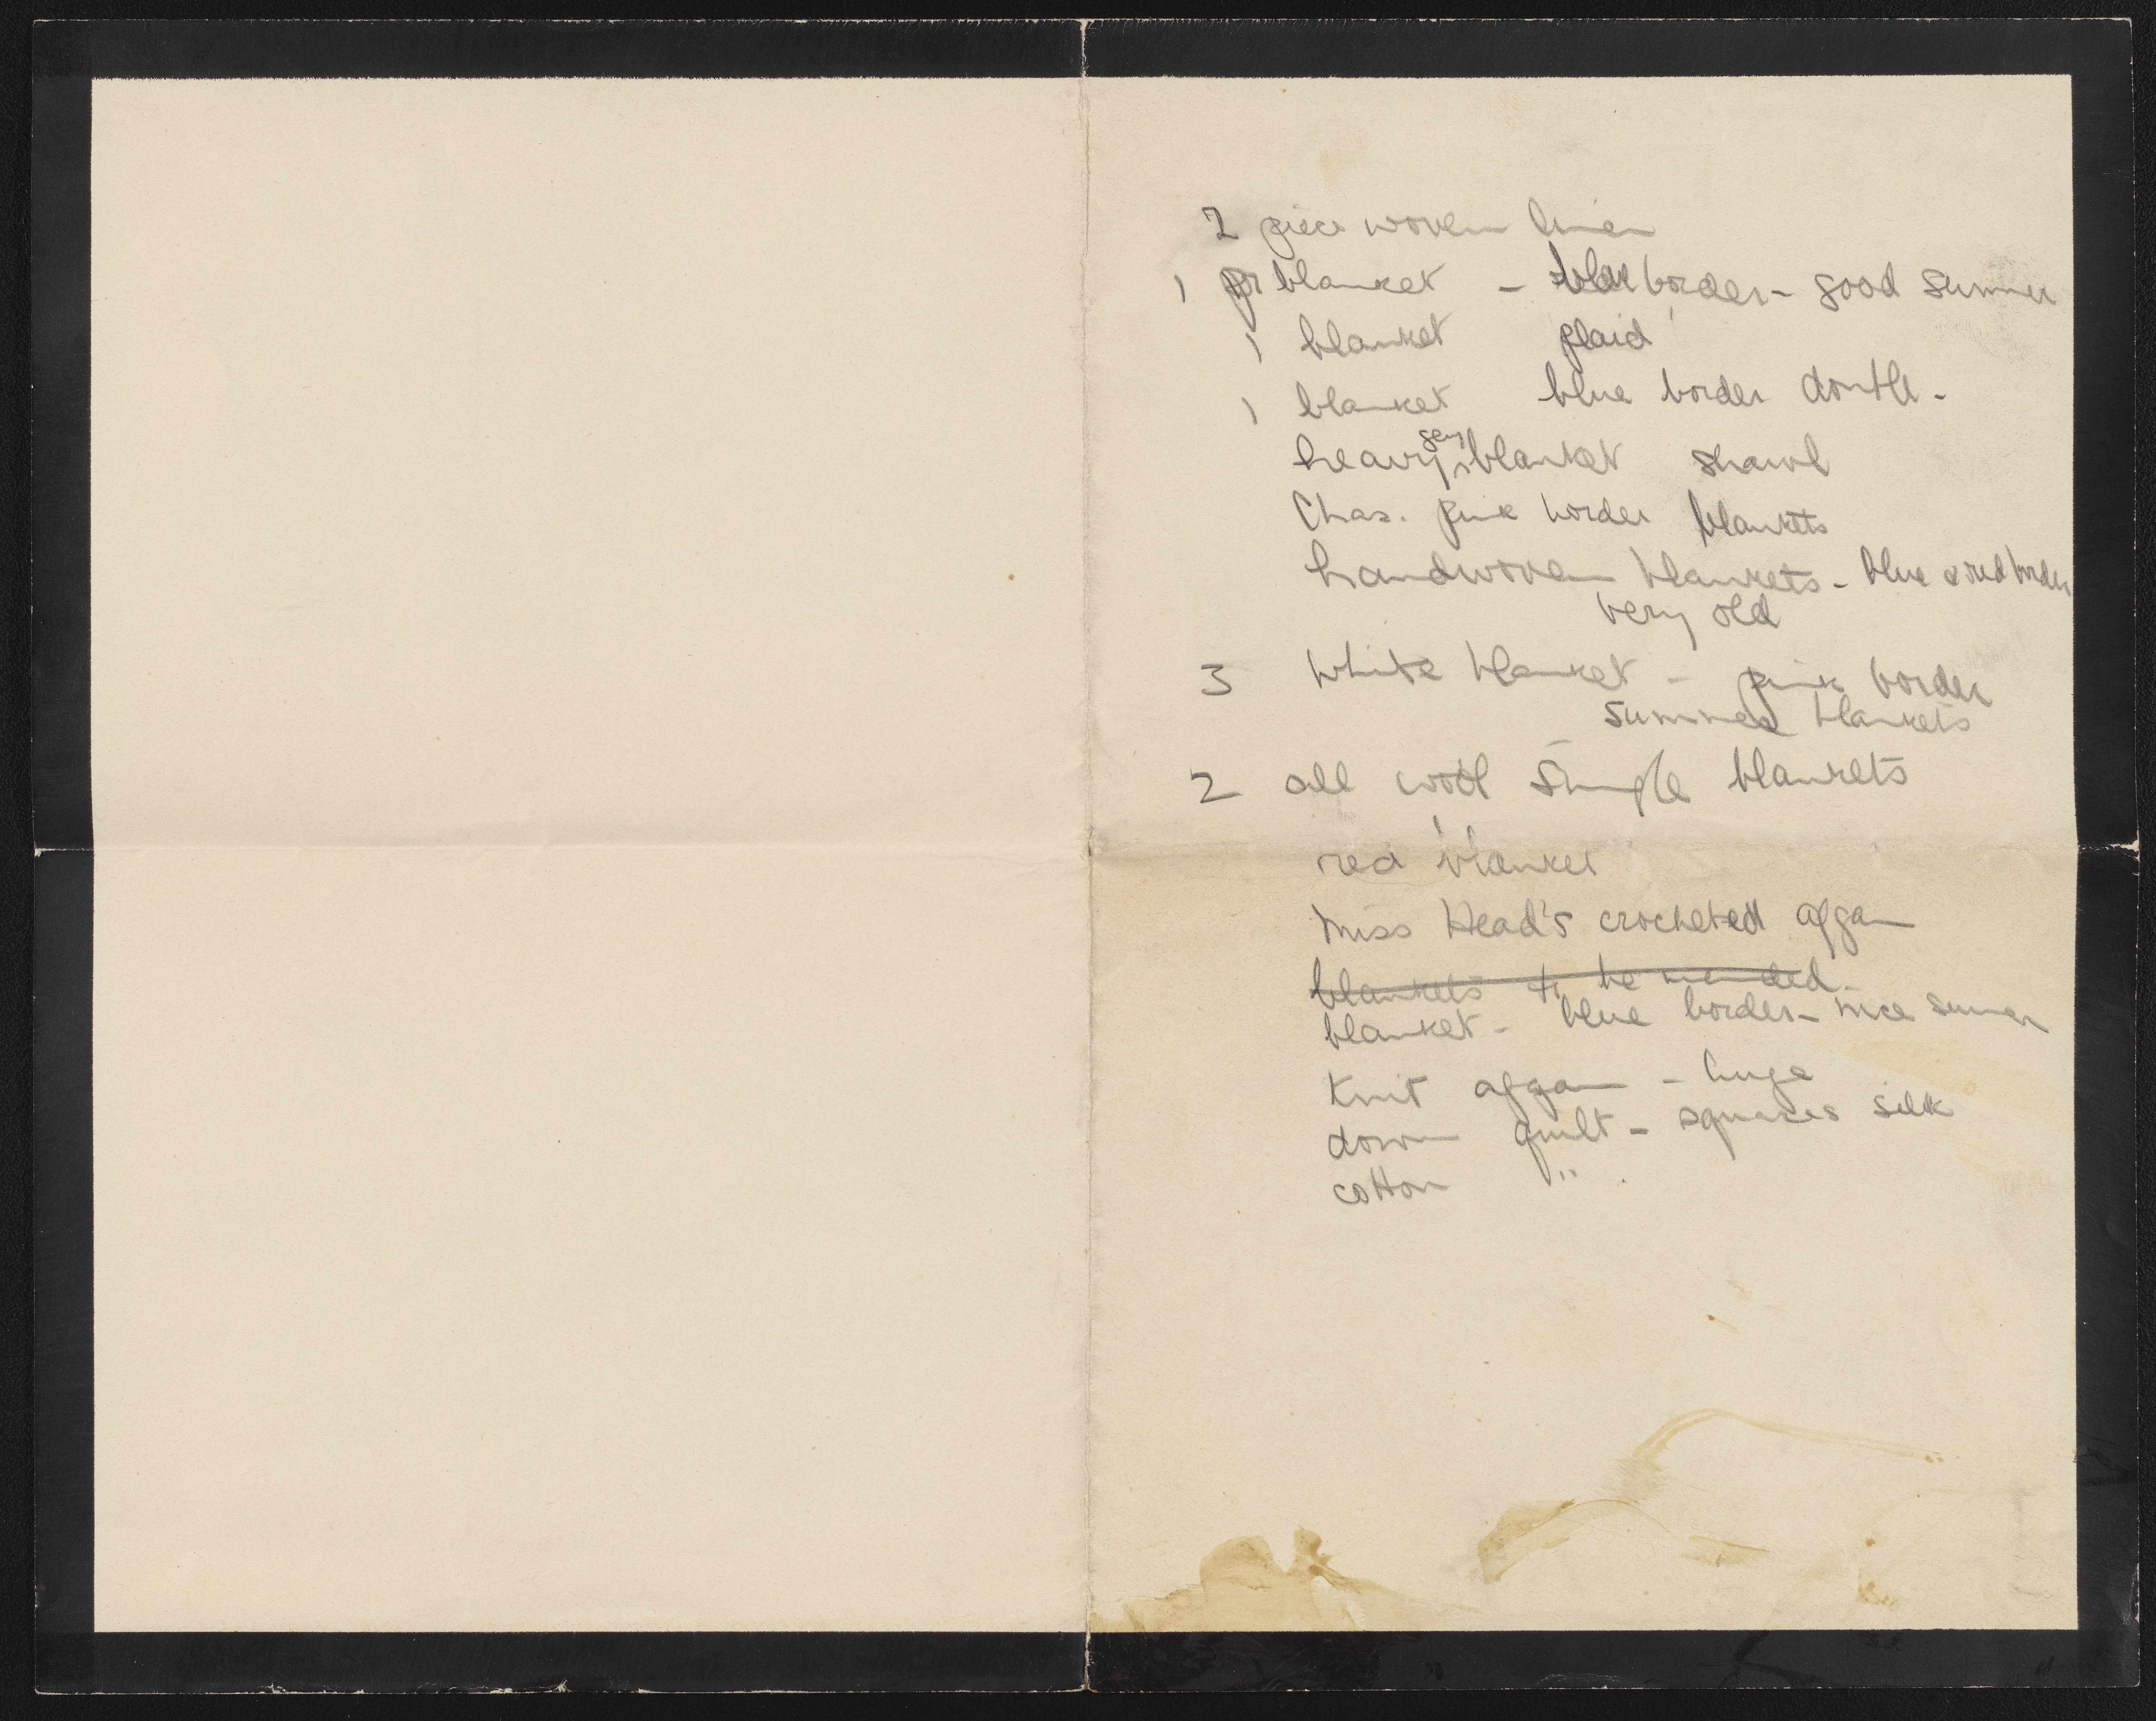 2 piece woven linen
1 pr blanket - blue border - good summer
1 blanket plaid
1 blanket blue border double -
heavy grey blanket shawl
Chas. pink border blankets
handwoven blankets - blue & red border
very old
3 white blanket - pink border
summer blankets
2 all wool single blankets
red blanket
Miss Head's crocheted afgan
blankets to be mended
blanket - blue border - nice summer
Knit afgan - huge
down quilt - squares silk
cotton "